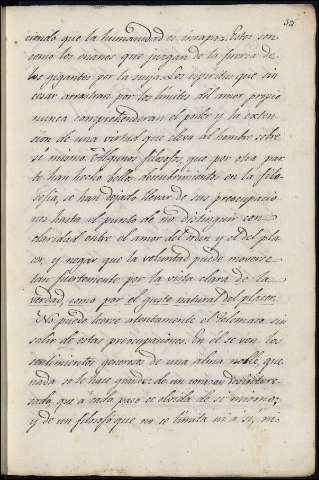 32
ciendo que la humanidad es incapaz. Estos son
como los enanos que juzgan de la fuerza de
los gigantes por la suya. Los espiritus que sin
cesar arrastran por los limites del amor propio
nunca comprehenderan el poder y la exten
sion de una virtud que eleva al hombre sobre
si mismo. Algunos filosofos, que por otra par
te han hecho bellos descubrimientos en la filo-
sofia, se han dejado llevar de sus preocupacio
nes hasta el punto de no distinguir con
claridad entre el amor del orden y el del pla
cer, y negar que la voluntad puede moverse
tan fuertemente por la vista clara de la
verdad, como por el gusto natural del placer.
No puede leerse atentamente el Telemaco sin
salir de estas preocupaciones. En el se ven los
sentimientos generosos de una alma noble, que
nada se le hace grande: de un corazon desintere-
sado, que á cada paso se olvida de si mismo;
y de un filosofo que no se limita ni á si, ni